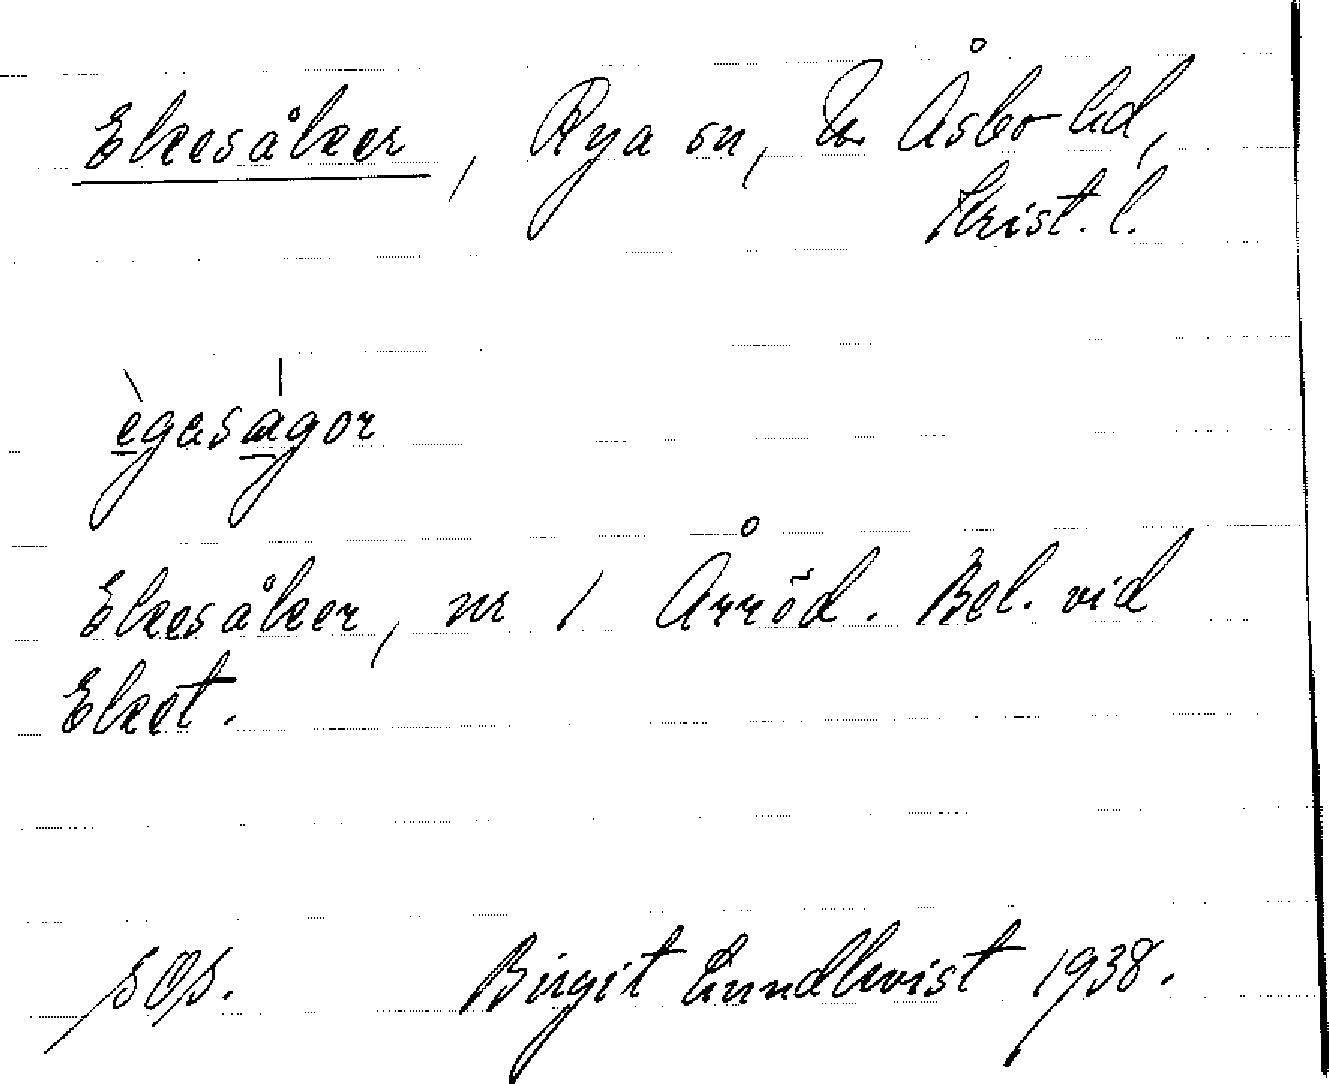 Ekesåker, Rya sn, N. Åsbo hd,
Krist. l.
ègasågor
Ekesåker, nr 1 Arröd. Bel. vid
Eket.
sOs. Birgit Lundkvist 1938.